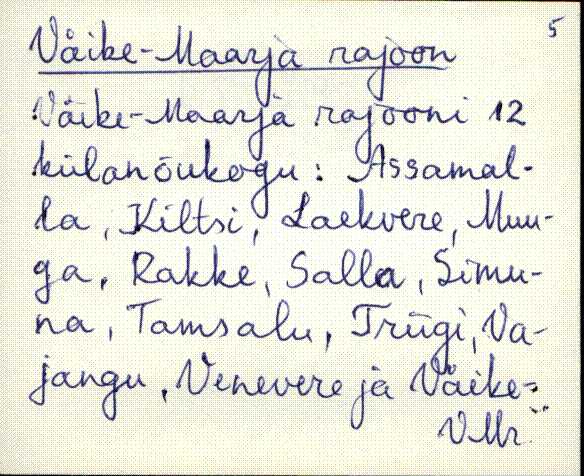 5
Väike-Maarja rajoon
Väike-Maarja rajooni 12
külanõukogu: Assamal-
la, Kiltsi, Laekvere, Muu-
ga, Rakke, Salla, Simu-
na, Tamsalu, Triigi, Va-
jangu, Venevere ja Väike-
VMr.